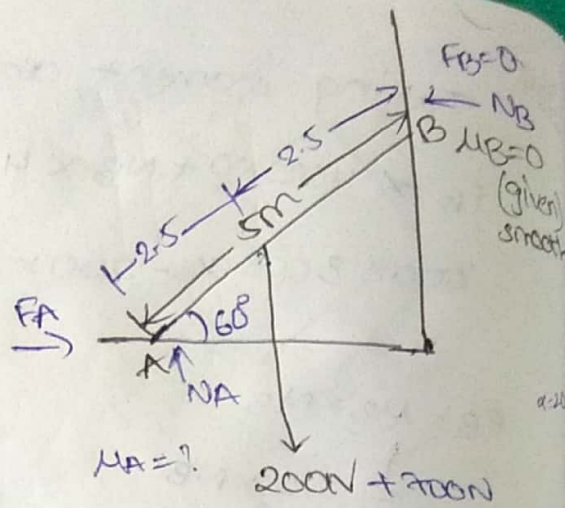 FB=0
NB
B
μB=0
(given)
smooth
2.5
5m
2.5
FA
60°
A
NA
μA=?
200N + 700N